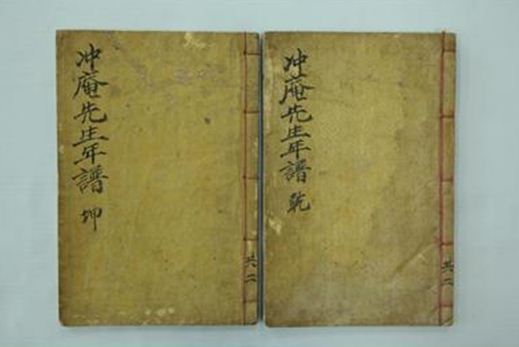 冲庵先生年譜 乾
共二
冲庵先生年譜 坤
共二